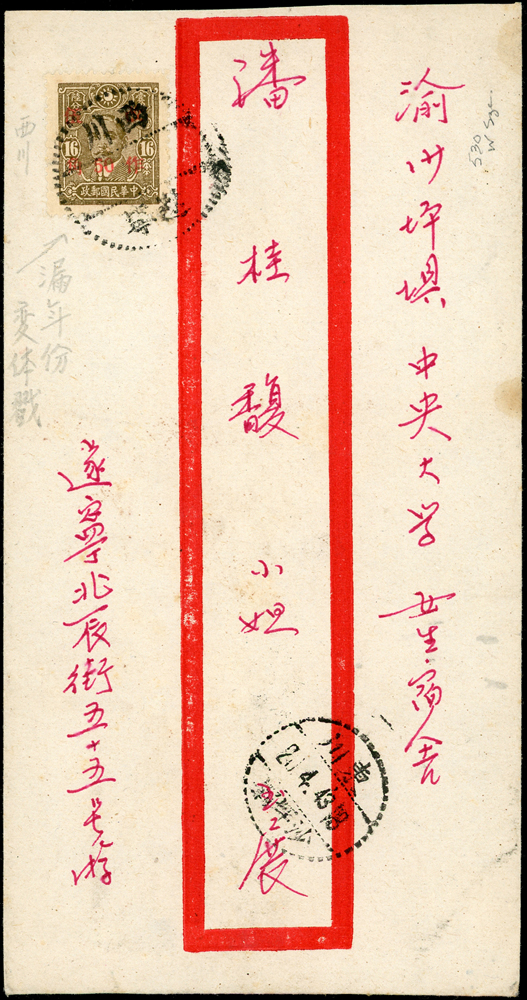 渝沙坪埧中央大学女生宿舍
潘桂馥小姐 玉展
遂寧北辰街五十五号游
西川
漏年份
变体戳
530
16 16
作 50
中華民國郵政
西川
遂寧